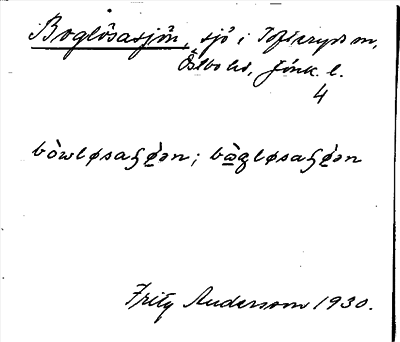 Boglösasjön, sjö i Tofteryds sn,
Östbo hd, Jönk. l.
4
bòwløsaɧø̀ən; bògløsaɧø̀ən
Fritz Andersson 1930.